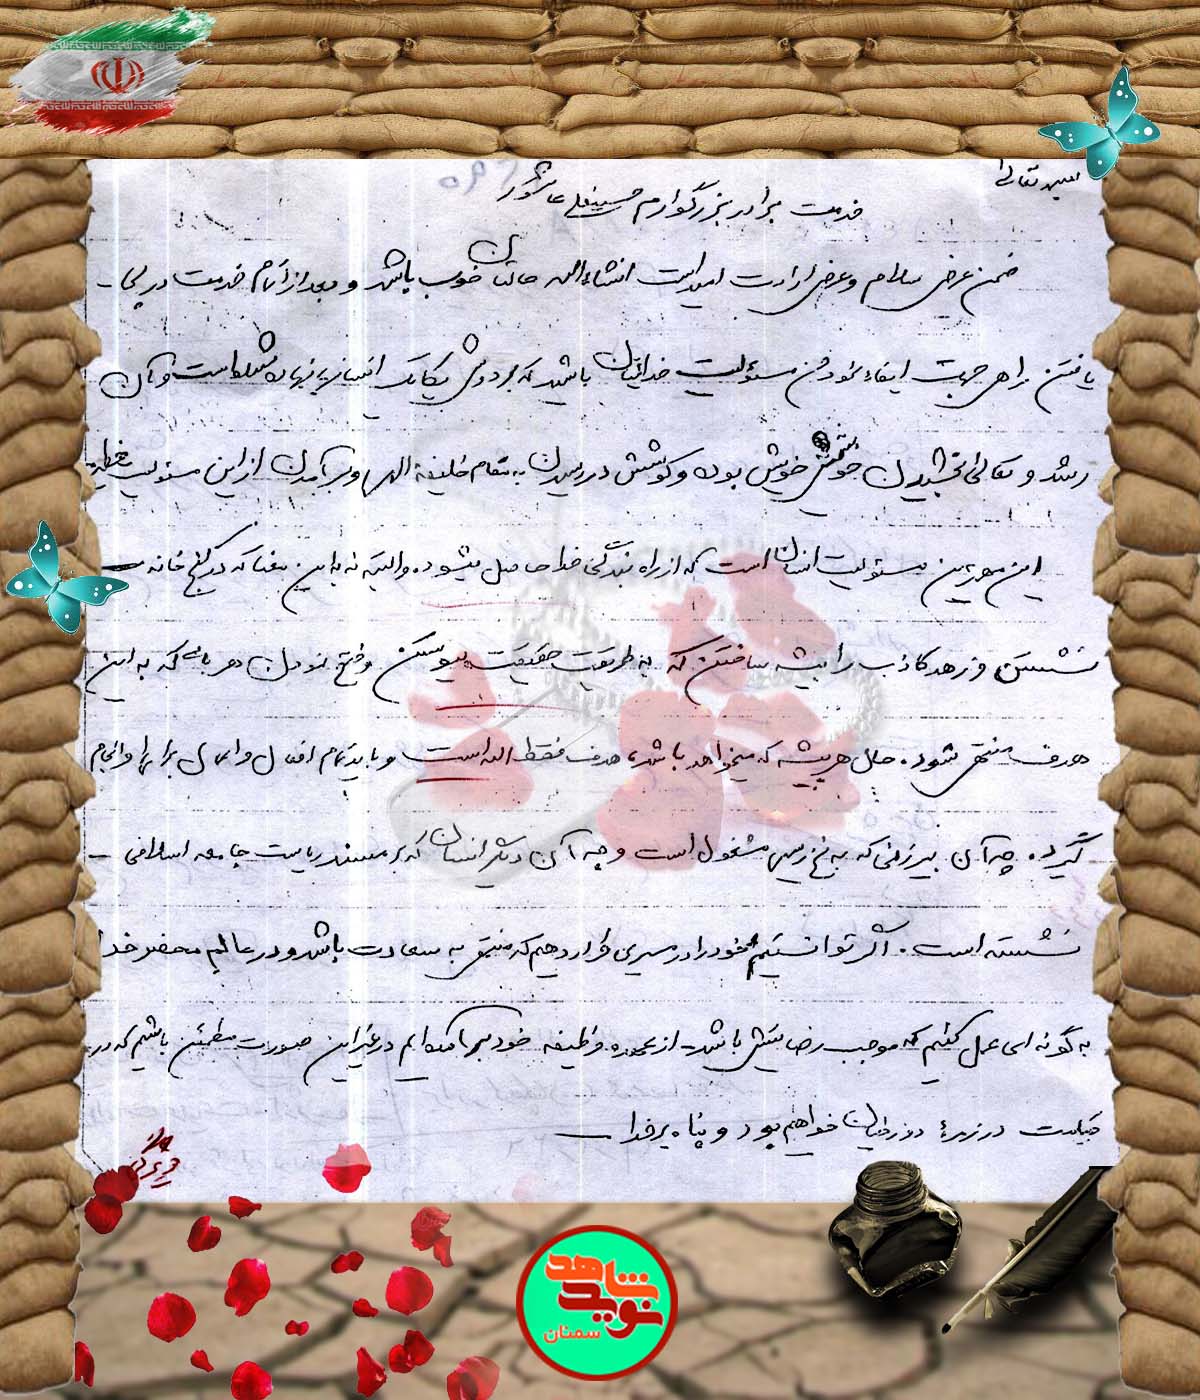 بسمه تعالی
خدمت برادر بزرگوارم حسینقلی عاشوری
ضمن عرض سلام و عرض ارادت امید است انشاءالله حالتان خوب باشد و بعد از اتمام خدمت در پی -
یافتن راهی جهت ایفاء نمودن مسئولیت خدائیتان باشید که بر دوش یکایک انسانها است و آن
رشد و تعالی بخشیدن خویش بوده و کوشش در رسیدن به مقام خلیفة الهی و برآمدن از این مسئولیت خطیر
این مهم ترین مسئولیت انسان است که از راه بندگی خدا حاصل میشود. والبته نه به این معنا که در کنج خانه
نشستن و زهد کاذب را پیشه ساختن که به طریقت حقیقت پیوستن و فتح نمودن هر بابی که به این
هدف منتهی شود. حال هر پیشه که میخواهد باشد، هدف فقط الله است و باید تمام افعال و اعمال برای او انجام
گیرد. چه آن پیرزنی که به نخ ریسی مشغول است و چه آن دیگر انسان که بر مسند ریاست جامعه اسلامی -
نشسته است. اگر توانستیم خود را در مسیری قرار دهیم که منتهی به سعادت باشد و در عالم محضر خدا
به گونه ای عمل کنیم که موجب رضایتش باشد از عهده وظیفه خود برآمده ایم در غیر این صورت مطمئن باشیم که در
قیامت در زمرهٔ دوزخیان خواهیم بود و پناه بر خدا
نوید شاهد
سمنان